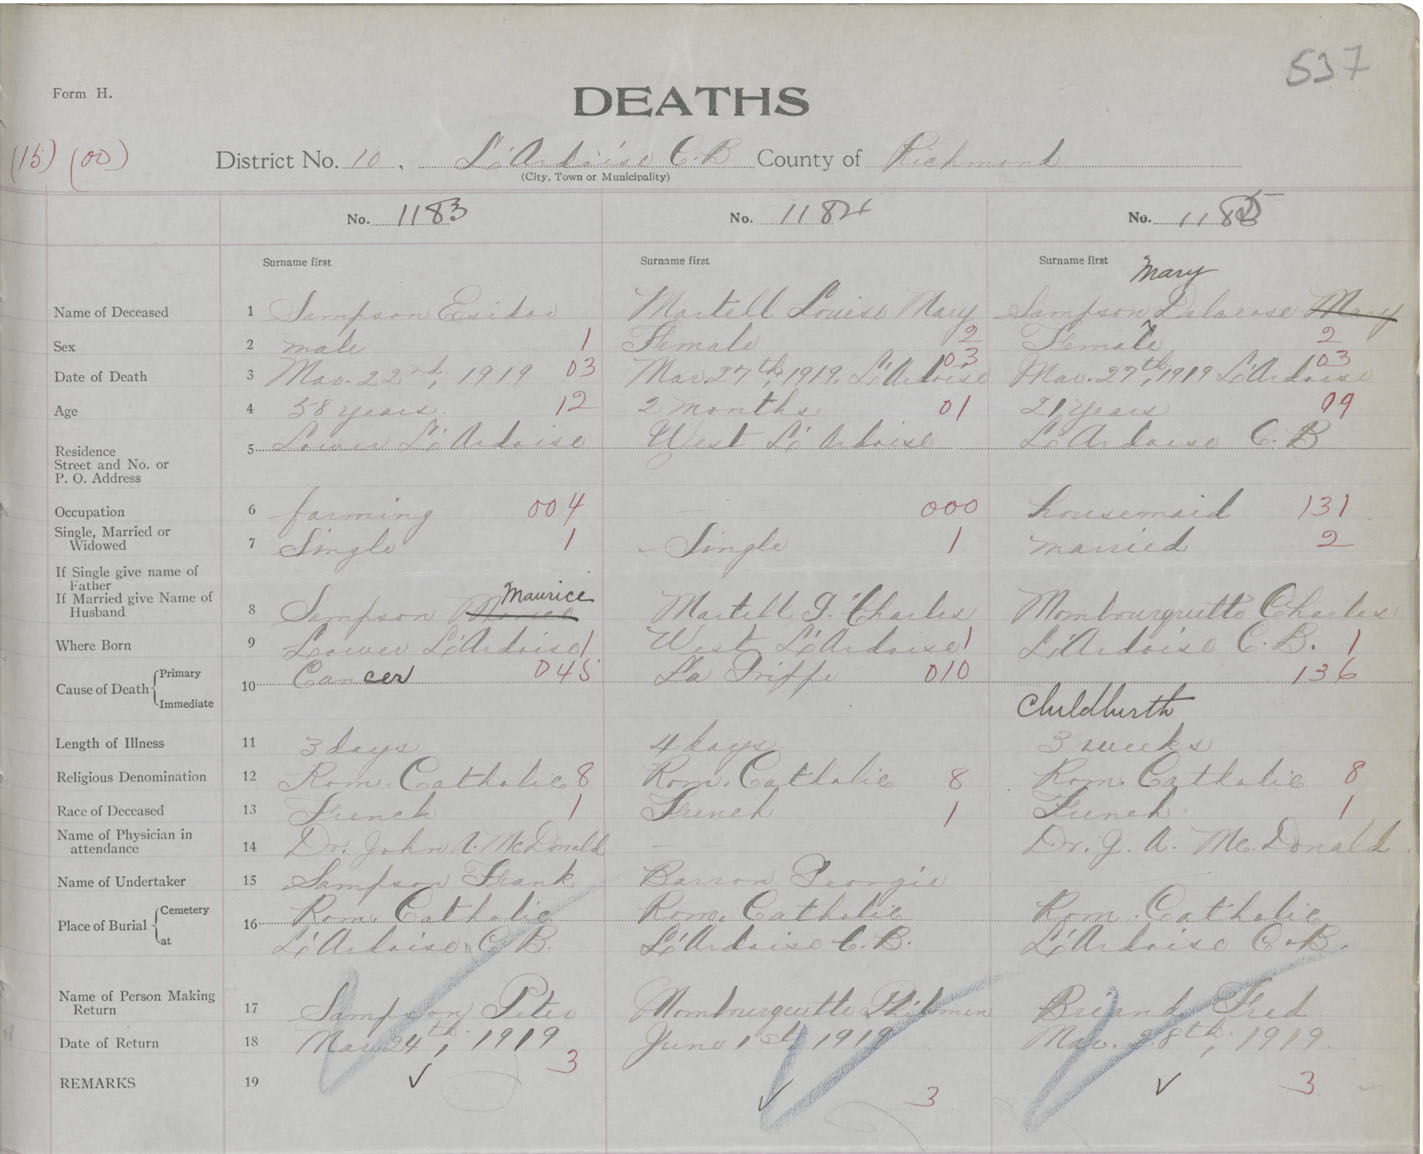 537
Form H.
DEATHS
(15) (00)
District No. 10, L'Ardoise C.B County of Richmond
(City, Town or Municipality)
No. 1183 No. 1184 No. 1185
Surname first Surname first Surname first Mary
Name of Deceased 1 Sampson Esidor Martell Louise Mary Sampson Dalarose Mary
Sex 2 male 1 Female 2 Female 2
Date of Death 3 Mar. 22nd, 1919 03 Mar. 27th, 1919, L'Ardoise 03 Mar. 27th, 1919 L'Ardoise 03
Age 4 58 years. 12 2 months 01 21 years 09
Residence
Street and No. or
P. O. Address
5 Lower L'Ardoise West L'Ardoise L'Ardoise C.B
Occupation 6 farming 004 000 housemaid 131
Single, Married or
Widowed 7 Single 1 Single 1 married 2
If Single give name of
Father
If Married give Name of
Husband 8 Sampson Maurice Martell J. Charles Mombourquette Charles
Where Born 9 Lower L'Ardoise 1 West L'Ardoise 1 L'Ardoise C.B. 1
Cause of Death Primary
Immediate
10 Cancer 045 La Grippe 010 136
Childbirth
Length of Illness 11 3 days 4 days 3 weeks
Religious Denomination 12 Rom. Catholic 8 Rom. Catholic 8 Rom. Catholic 8
Race of Deceased 13 French 1 French 1 French 1
Name of Physician in
attendance 14 Dr. John A. McDonald — Dr. J. A. McDonald
Name of Undertaker 15 Sampson Frank Barron Georgie
Place of Burial Cemetery
at
16 Rom. Catholic Rom. Catholic Rom. Catholic
L'Ardoise C.B. L'Ardoise C.B. L'Ardoise C.B.
Name of Person Making
Return 17 Sampson Peter Mombourquette Philomen Briand Fred
Date of Return 18 Mar 24th, 1919 June 1st, 1919 Mar. 28th, 1919
REMARKS 19 3 3 3